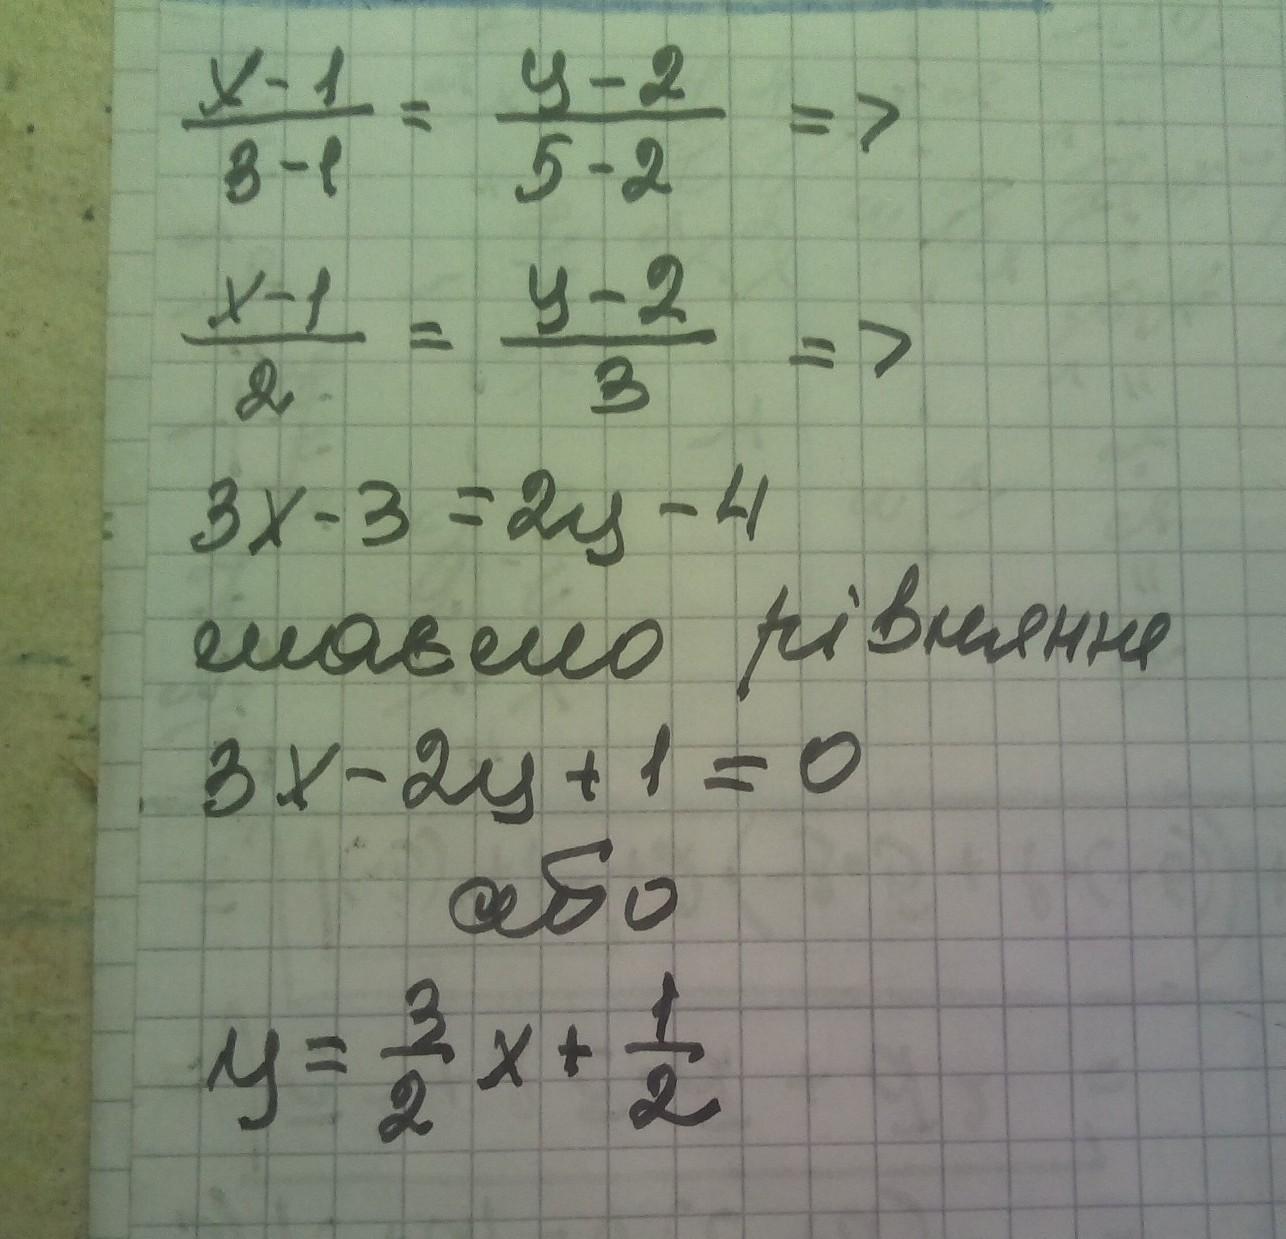 x-1/3-1 = y-2/5-2 =>
x-1/2 = y-2/3 =>
3x-3=2y-4
маємо рівняння
3x-2y+1=0
або
y=3/2x+1/2